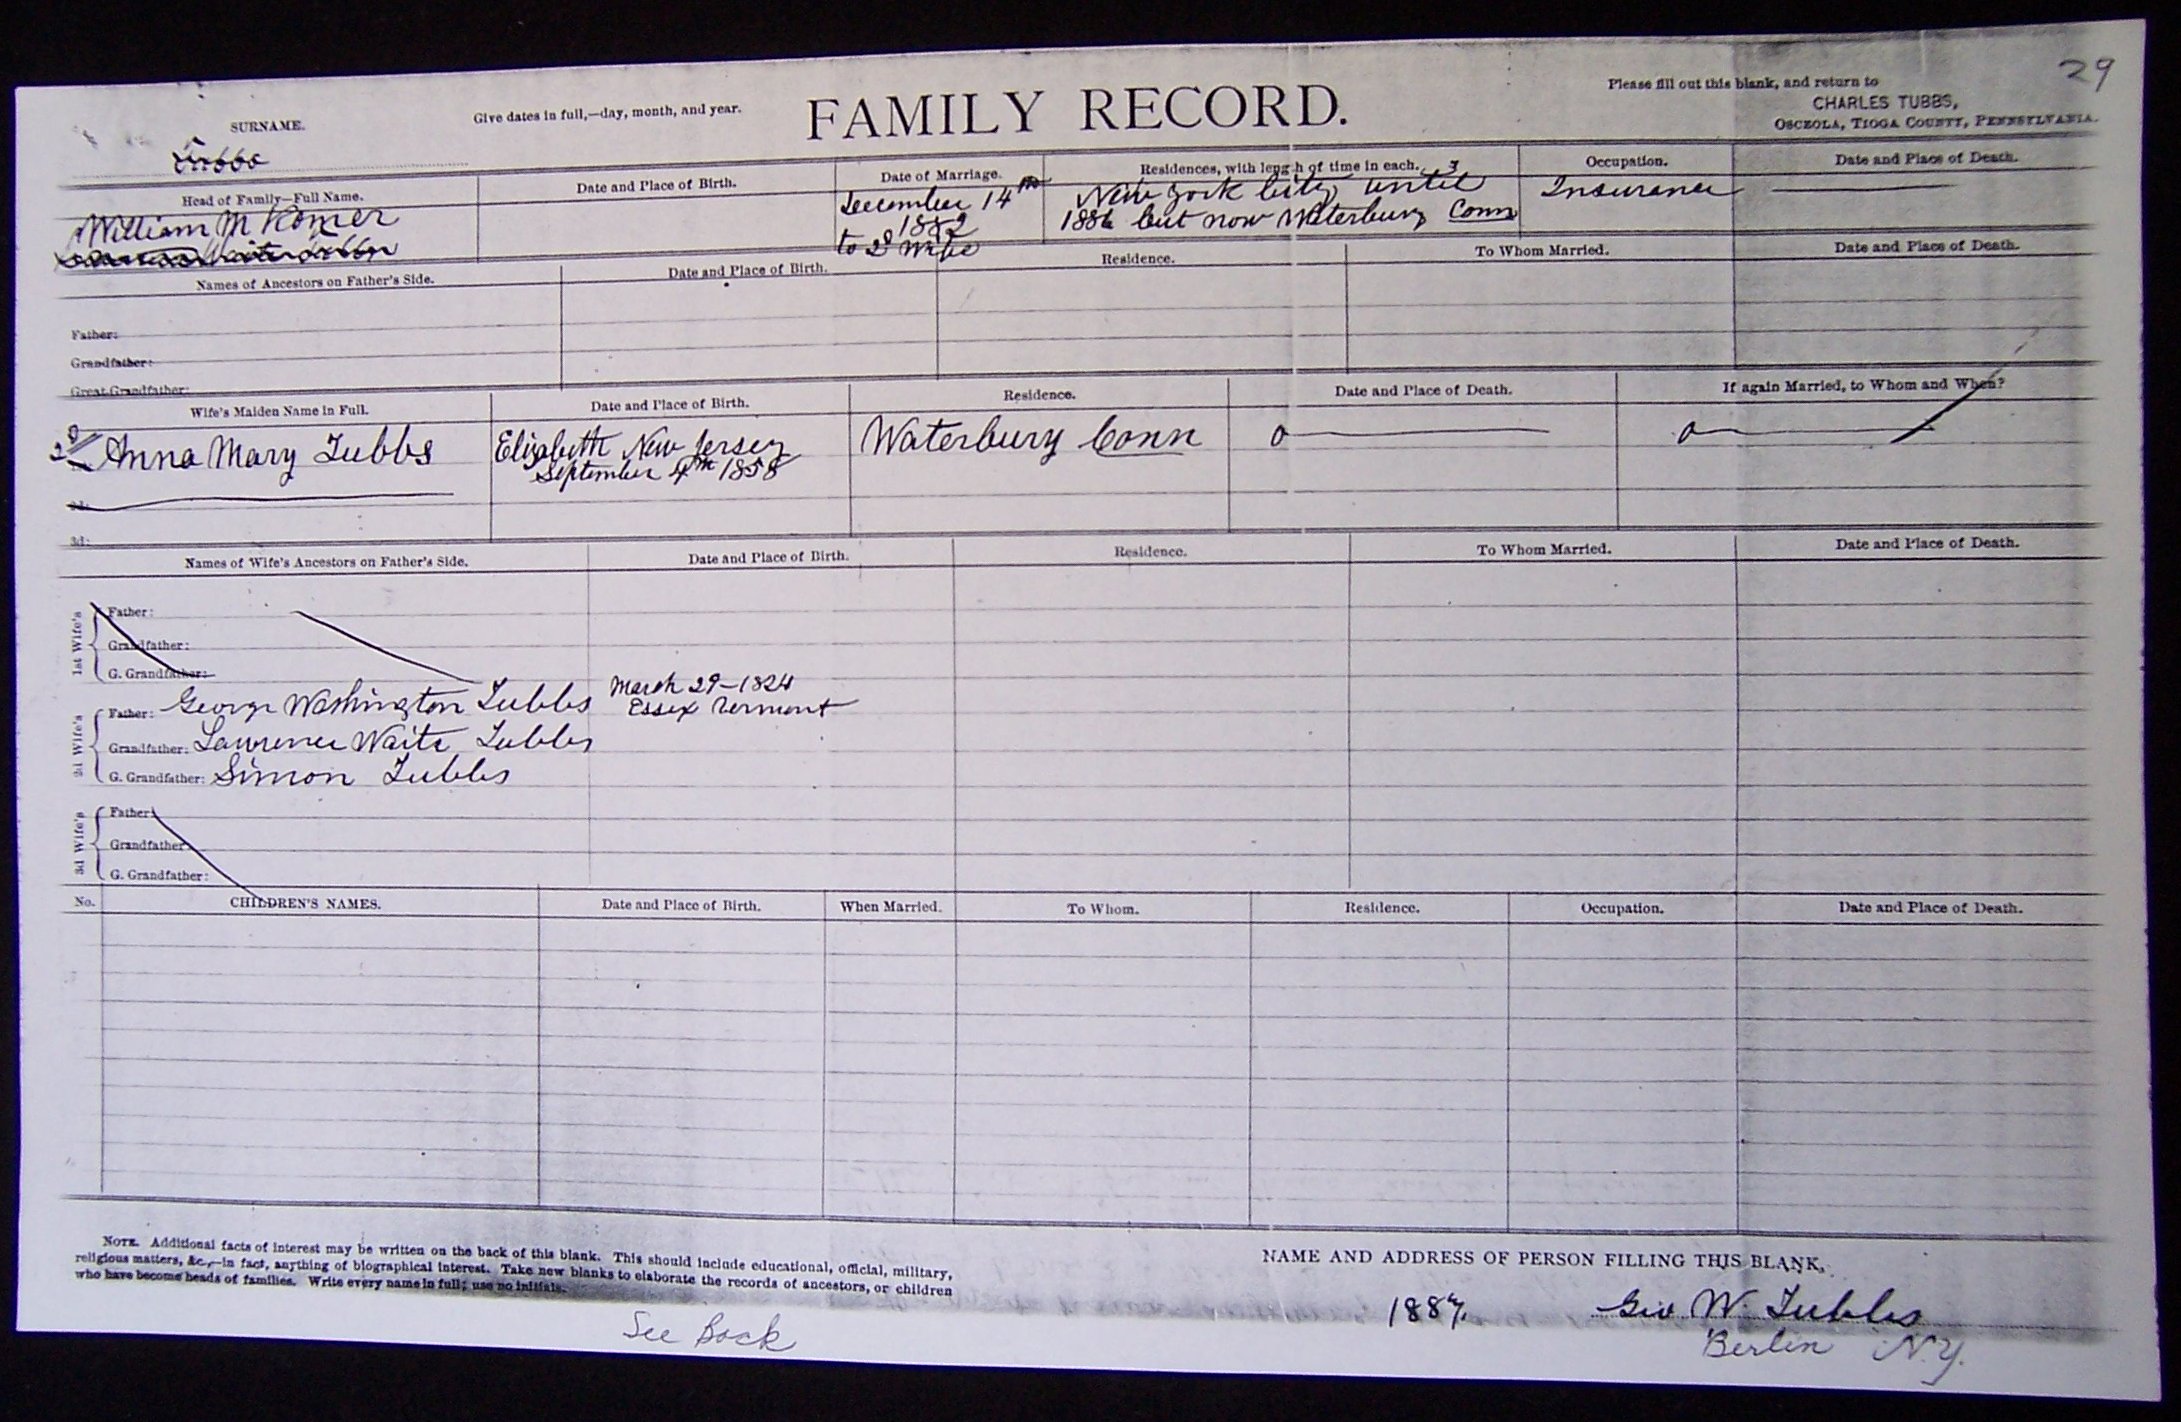 29
Please fill out this blank, and return to
CHARLES TUBBS,
OSCEOLA, TIOGA COUNTY, PENNSYLVANIA.
Give dates in full,—day, month, and year.
FAMILY RECORD.
SURNAME.
Tubbs
Head of Family—Full Name.
Date and Place of Birth.
Date of Marriage.
Residences, with length of time in each.
Occupation.
Date and Place of Death.
William M
Waite Tubbs
December 14th
1882
to 2d Wife
New York City until
1886 but now Waterbury Conn
Insurance
Names of Ancestors on Father's Side.
Date and Place of Birth.
Residence.
To Whom Married.
Date and Place of Death.
Father:
Grandfather:
Great-Grandfather:
Wife's Maiden Name in Full.
Date and Place of Birth.
Residence.
Date and Place of Death.
If again Married, to Whom and When?
2d Anna Mary Tubbs
Elizabeth New Jersey
September 4th 1858
Waterbury Conn
2d:
3d:
Names of Wife's Ancestors on Father's Side.
Date and Place of Birth.
Residence.
To Whom Married.
Date and Place of Death.
1st Wife's
Father:
Grandfather:
G. Grandfather:
2d Wife's
Father: George Washington Tubbs
March 29-1824
Essex Vermont
Grandfather: Lawrence Waite Tubbs
G. Grandfather: Simon Tubbs
3d Wife's
Father:
Grandfather:
G. Grandfather:
No.
CHILDREN'S NAMES.
Date and Place of Birth.
When Married.
To Whom.
Residence.
Occupation.
Date and Place of Death.
NOTE. Additional facts of interest may be written on the back of this blank. This should include educational, official, military,
religious matters, &c.,—in fact, anything of biographical interest. Take new blanks to elaborate the records of ancestors, or children
who have become heads of families. Write every name in full; use no initials.
NAME AND ADDRESS OF PERSON FILLING THIS BLANK.
1887.
Geo W. Tubbs
Berlin N.Y.
See Back